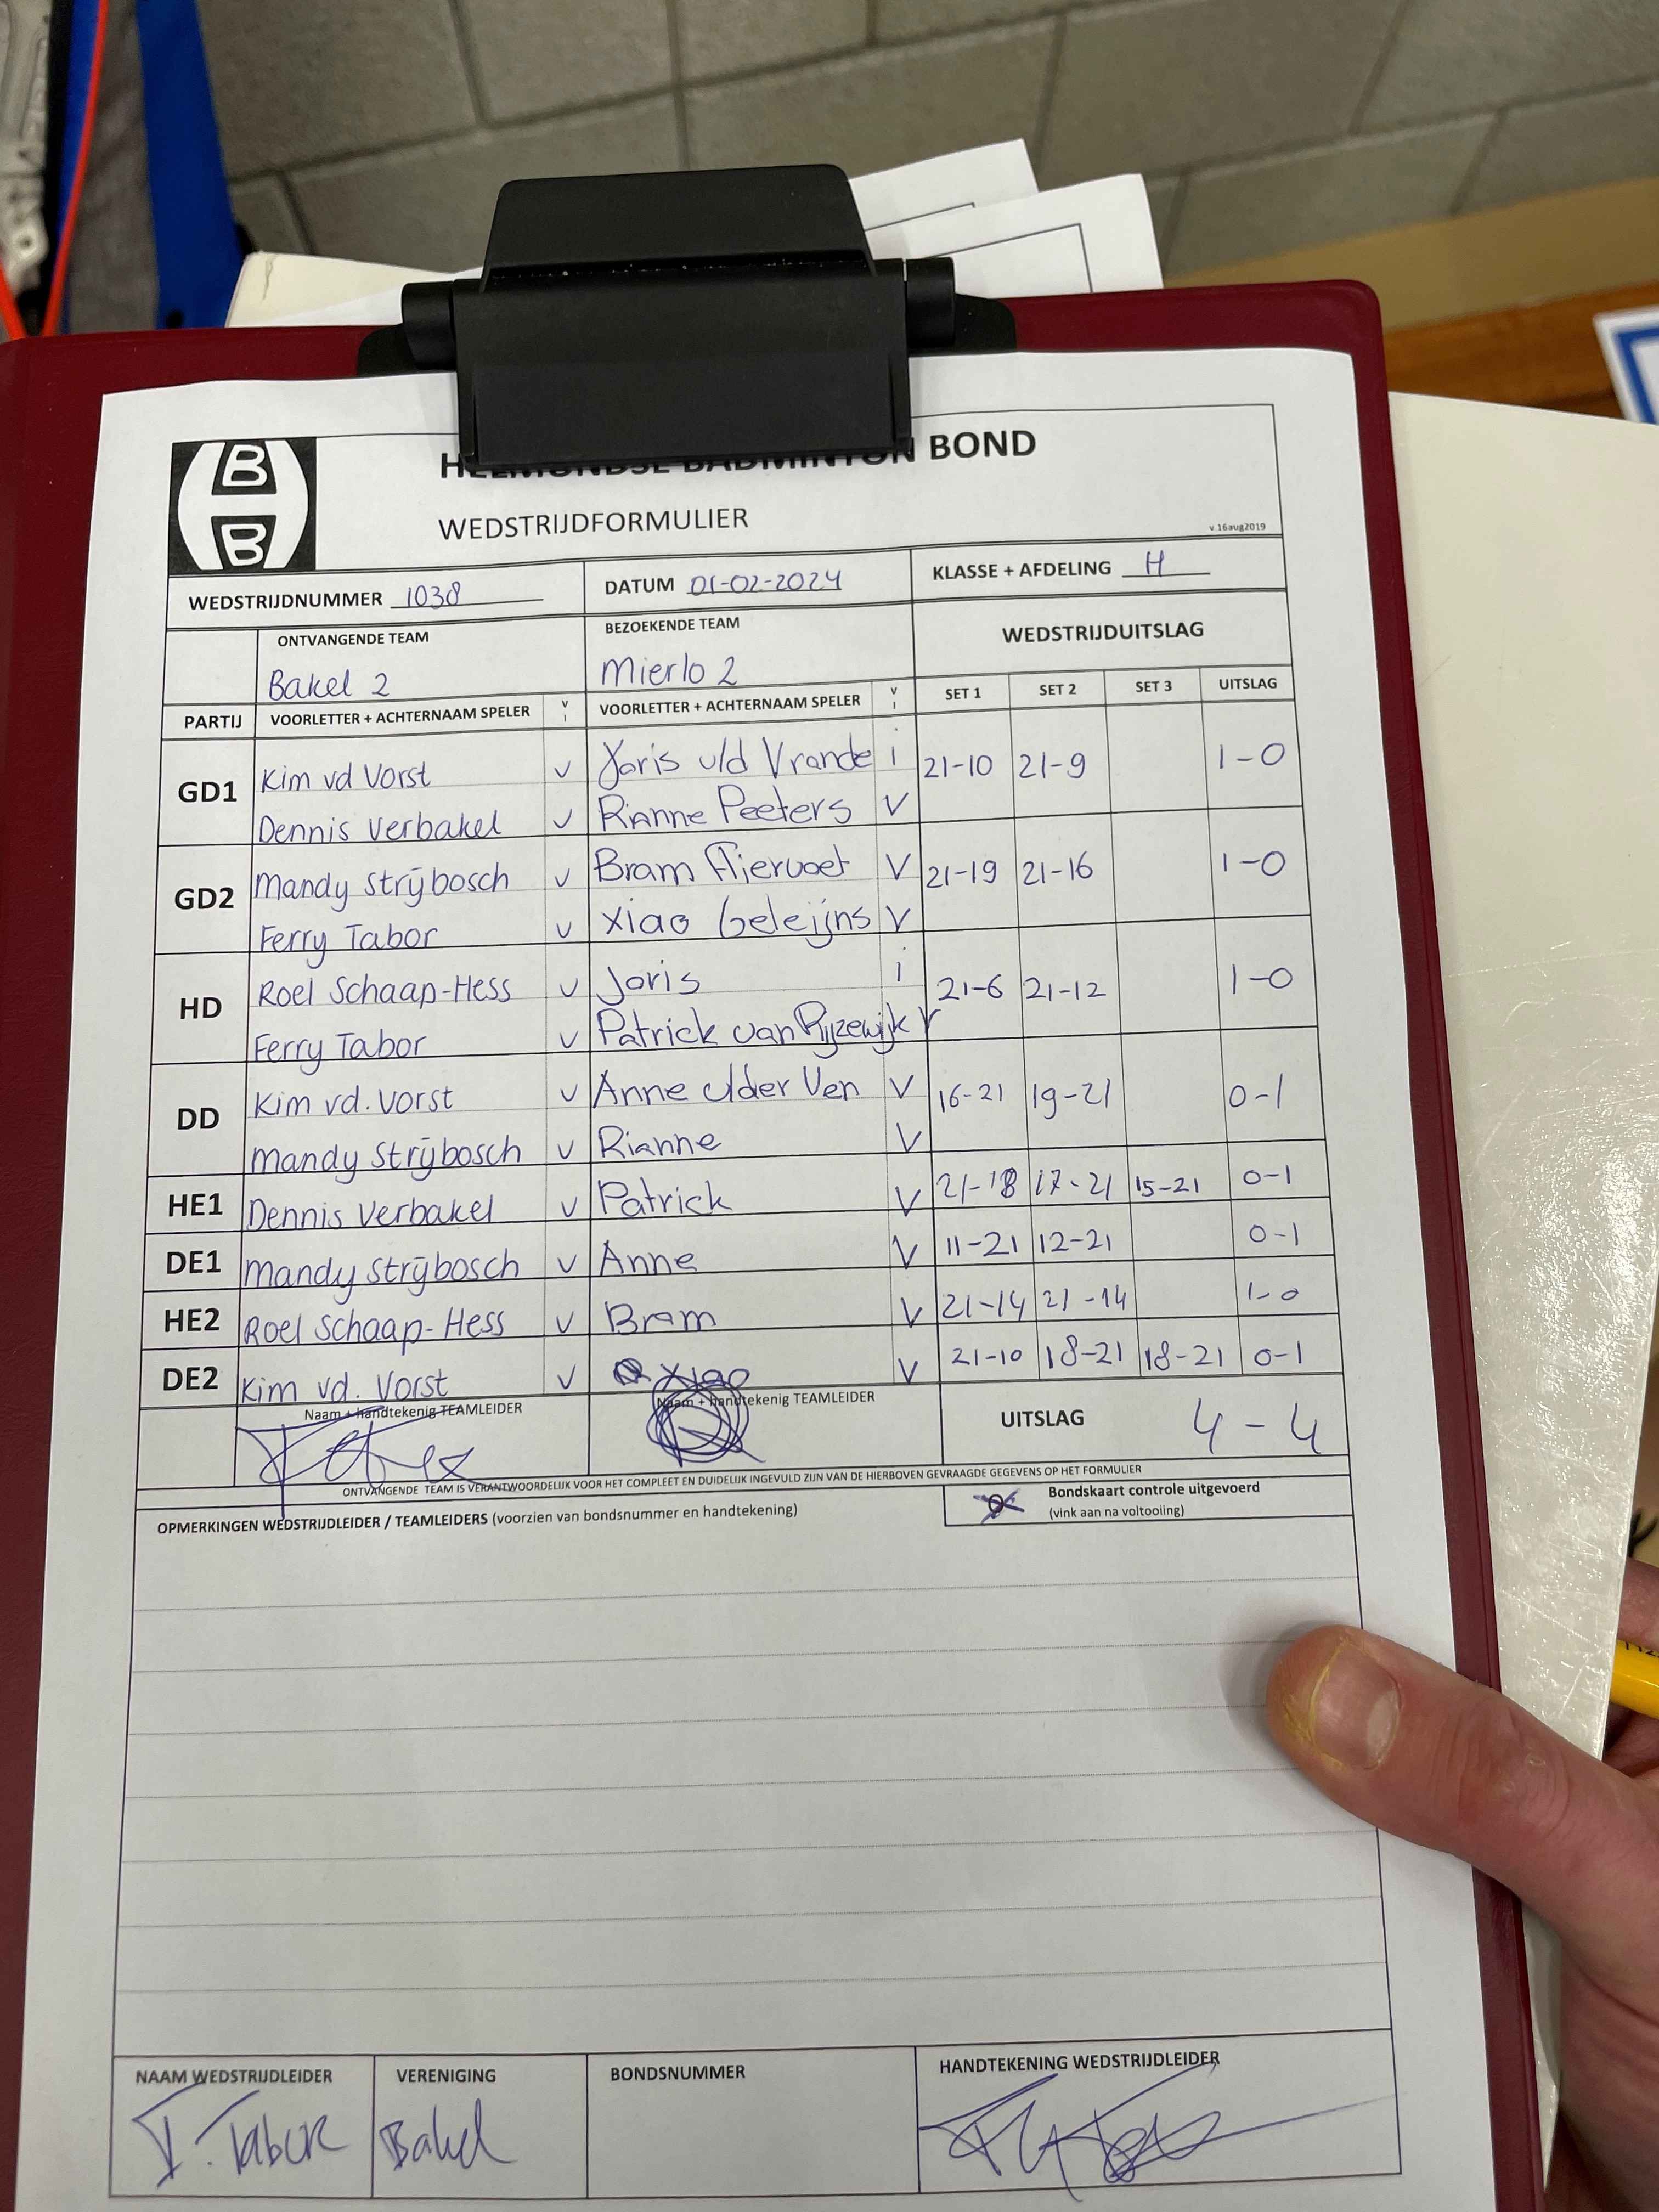 B
B
HELMONDSE BADMINTON BOND
WEDSTRIJDFORMULIER
v.16aug2019
WEDSTRIJDNUMMER 1038 DATUM 01-02-2024 KLASSE + AFDELING H
ONTVANGENDE TEAM BEZOEKENDE TEAM WEDSTRIJDUITSLAG
Bakel 2 Mierlo 2
PARTIJ VOORLETTER + ACHTERNAAM SPELER V I VOORLETTER + ACHTERNAAM SPELER V I SET 1 SET 2 SET 3 UITSLAG
GD1 Kim vd Vorst v Joris v/d Vrande i 21-10 21-9 1-0
Dennis Verbakel v Rianne Peeters V
GD2 Mandy Strijbosch v Bram Fliervoet V 21-19 21-16 1-0
Ferry Tabor v Xiao Geleijns V
HD Roel Schaap-Hess v Joris i 21-6 21-12 1-0
Ferry Tabor v Patrick van Rijzewijk V
DD Kim vd. Vorst v Anne v/der Ven V 16-21 19-21 0-1
Mandy Strijbosch v Rianne V
HE1 Dennis Verbakel v Patrick V 21-18 17-21 15-21 0-1
DE1 Mandy Strijbosch v Anne V 11-21 12-21 0-1
HE2 Roel Schaap-Hess v Bram V 21-14 21-14 1-0
DE2 Kim vd. Vorst v Xiao V 21-10 18-21 18-21 0-1
Naam + handtekenig TEAMLEIDER Naam + handtekenig TEAMLEIDER UITSLAG 4-4
ONTVANGENDE TEAM IS VERANTWOORDELIJK VOOR HET COMPLEET EN DUIDELIJK INGEVULD ZIJN VAN DE HIERBOVEN GEVRAAGDE GEGEVENS OP HET FORMULIER
OPMERKINGEN WEDSTRIJDLEIDER / TEAMLEIDERS (voorzien van bondsnummer en handtekening) Bondskaart controle uitgevoerd
(vink aan na voltooiing)
NAAM WEDSTRIJDLEIDER VERENIGING BONDSNUMMER HANDTEKENING WEDSTRIJDLEIDER
F. Tabor Bakel